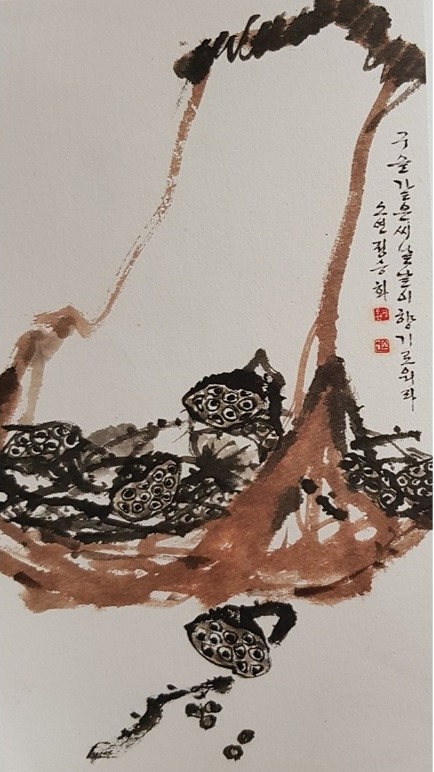 구슬 같은 씨 낱낱이 향기로워라
소연 정승화